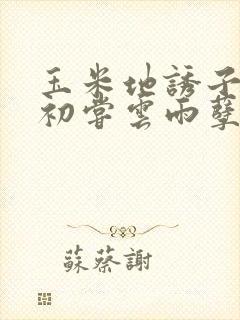 玉米地誘子
初嘗雲雨孽
蘇蔡謝